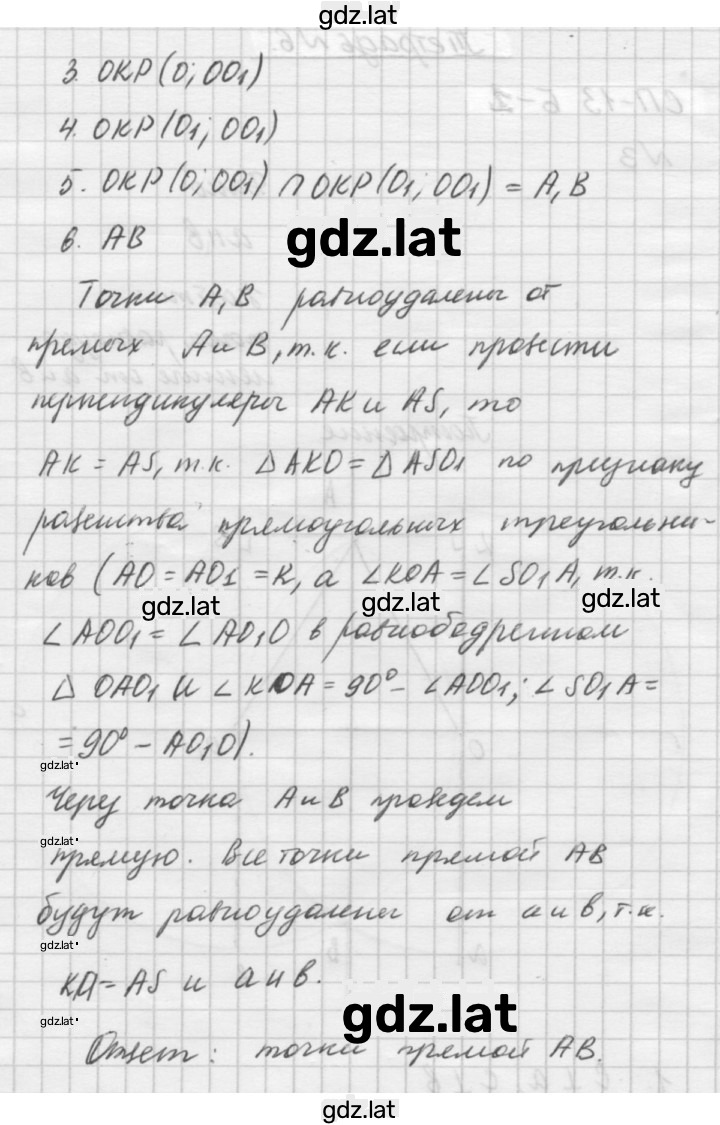 gdz.lat
3. ОКР(O; OO₁)
4. ОКР(O₁; OO₁)
5. ОКР(O; OO₁) ∩ ОКР(O₁; OO₁) = A, B
6. AB
gdz.lat
Точки A, B равноудалены от
прямых A и B, т.к. если провести
перпендикуляры AK и AS, то
AK = AS, т.к. △AKO = △ASO₁ по признаку
равенства прямоугольных треугольни-
ков (AO = AO₁ = R, а ∠KOA = ∠SO₁A, т.к.
gdz.lat gdz.lat gdz.lat
∠AOO₁ = ∠AO₁O в равнобедренном
△ OAO₁ и ∠KOA = 90° - ∠AOO₁; ∠SO₁A =
= 90° - AO₁O).
gdz.lat
Через точка A и B проведем
gdz.lat
прямую. Все точки прямой AB
будут равноудалены от a и в, т.к.
gdz.lat
KA = AS и a ∥ в.
gdz.lat
gdz.lat
Ответ: точки прямой AB.
gdz.lat